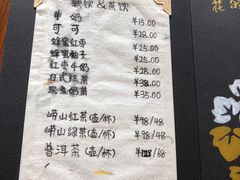 软饮&茶饮
牛奶 ¥15.00
可可 ¥28.00
蜂蜜红枣 ¥25.00
蜂蜜柚子 ¥28.00
红枣牛奶 ¥25.00
日式抹茶 ¥28.00
现煮奶茶 ¥35.00
崂山红茶(壶/杯) ¥98/48
崂山绿茶(壶/杯) ¥98/48
普洱茶(壶/杯) ¥128/68
花